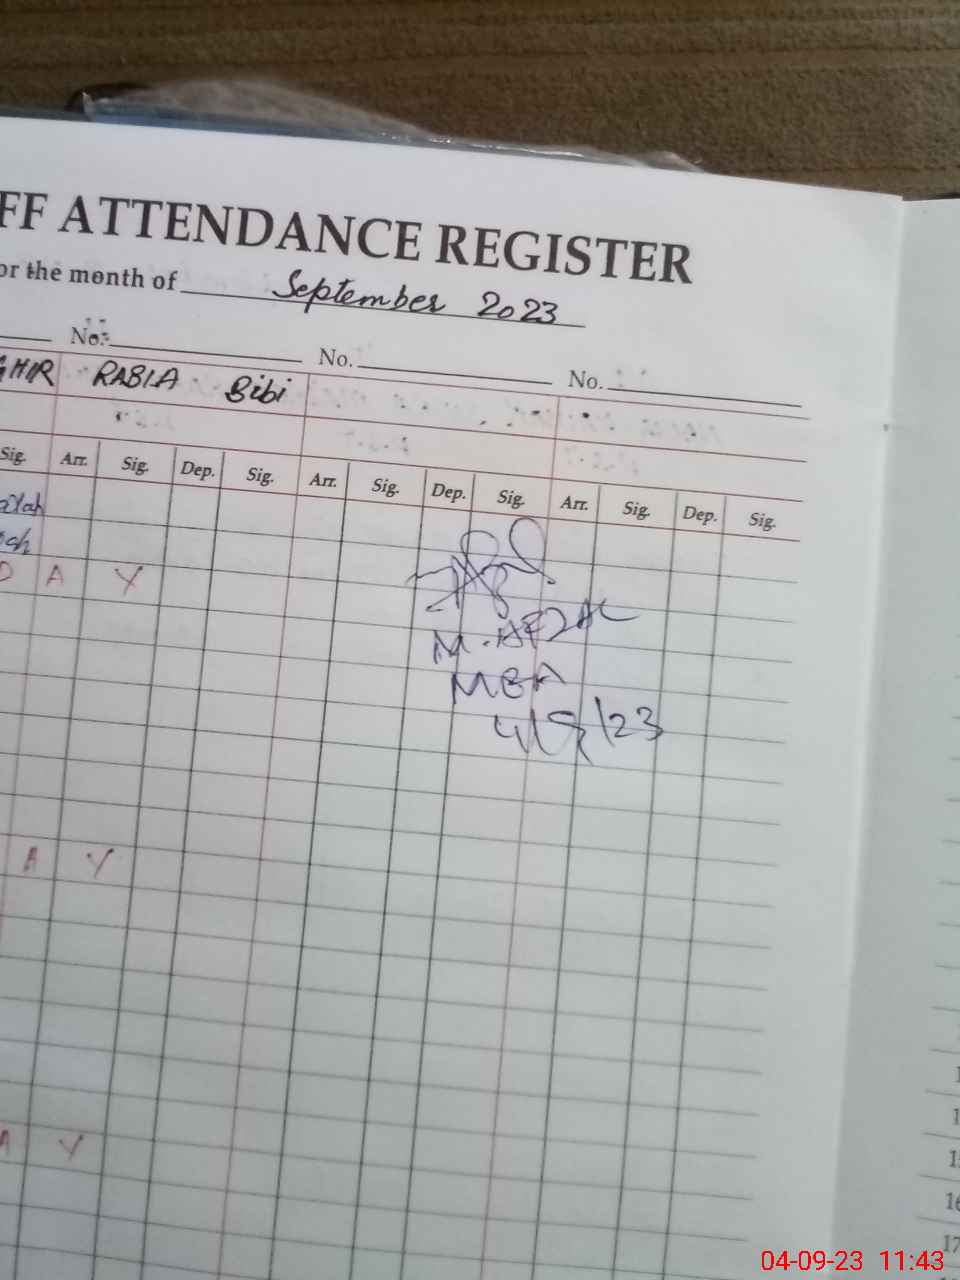 FF ATTENDANCE REGISTER
or the month of September 2023
No. No. No.
GHIR RABIA Bibi
Sig. Arr. Sig. Dep. Sig. Arr. Sig. Dep. Sig. Arr. Sig. Dep. Sig.
D A Y
M. AFZAL
MEA
4/9/23
A Y
A Y
15
16
17
04-09-23 11:43